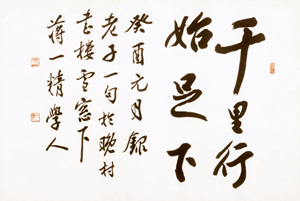 千里行
始足下
癸酉元月録
老子一句於晚村
書樓雪窓下
蔣一精學人